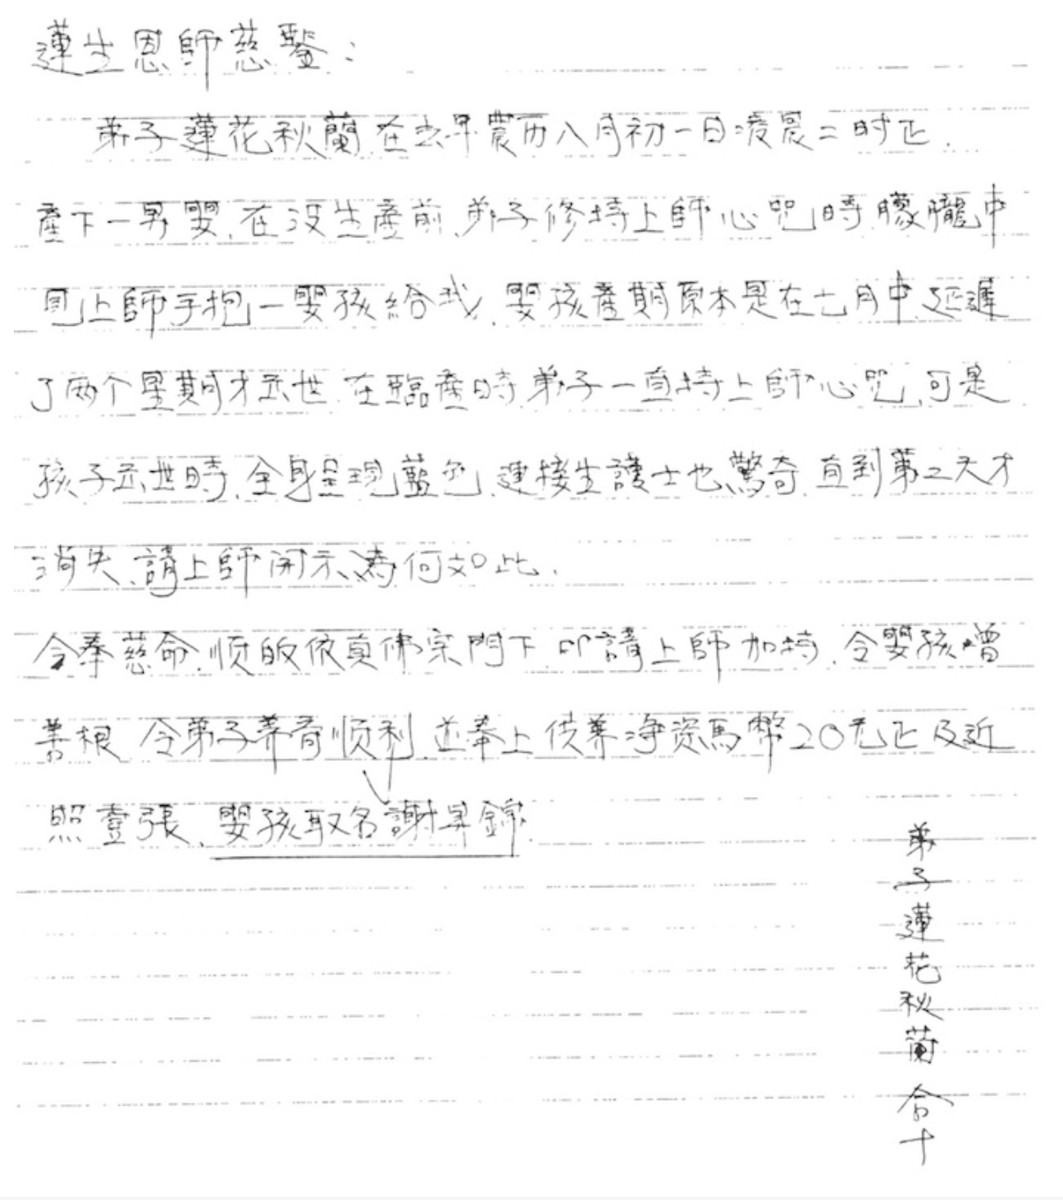 蓮生恩師慈鑒：
弟子蓮花秋蘭在去年農历八月初一日凌晨二时正.
產下一男嬰.在沒生產前.弟子修持上師心咒時朦朧中
見上師手抱一嬰孩給我.嬰孩產期原本是在七月中.延遲
了两个星期才出世.在臨產時.弟子一直持上師心咒.可是
孩子出世時.全身呈現藍色.連接生護士也驚奇.直到第二天才
消失.請上師開示.為何如此.
今奉慈命.顺皈依真佛宗門下.叩請上師加持.令嬰孩增
善根.令弟子养育顺利.並奉上供养净资馬幣20元正及近
照壹張.嬰孩取名謝昇錦.
弟子蓮花秋蘭合十